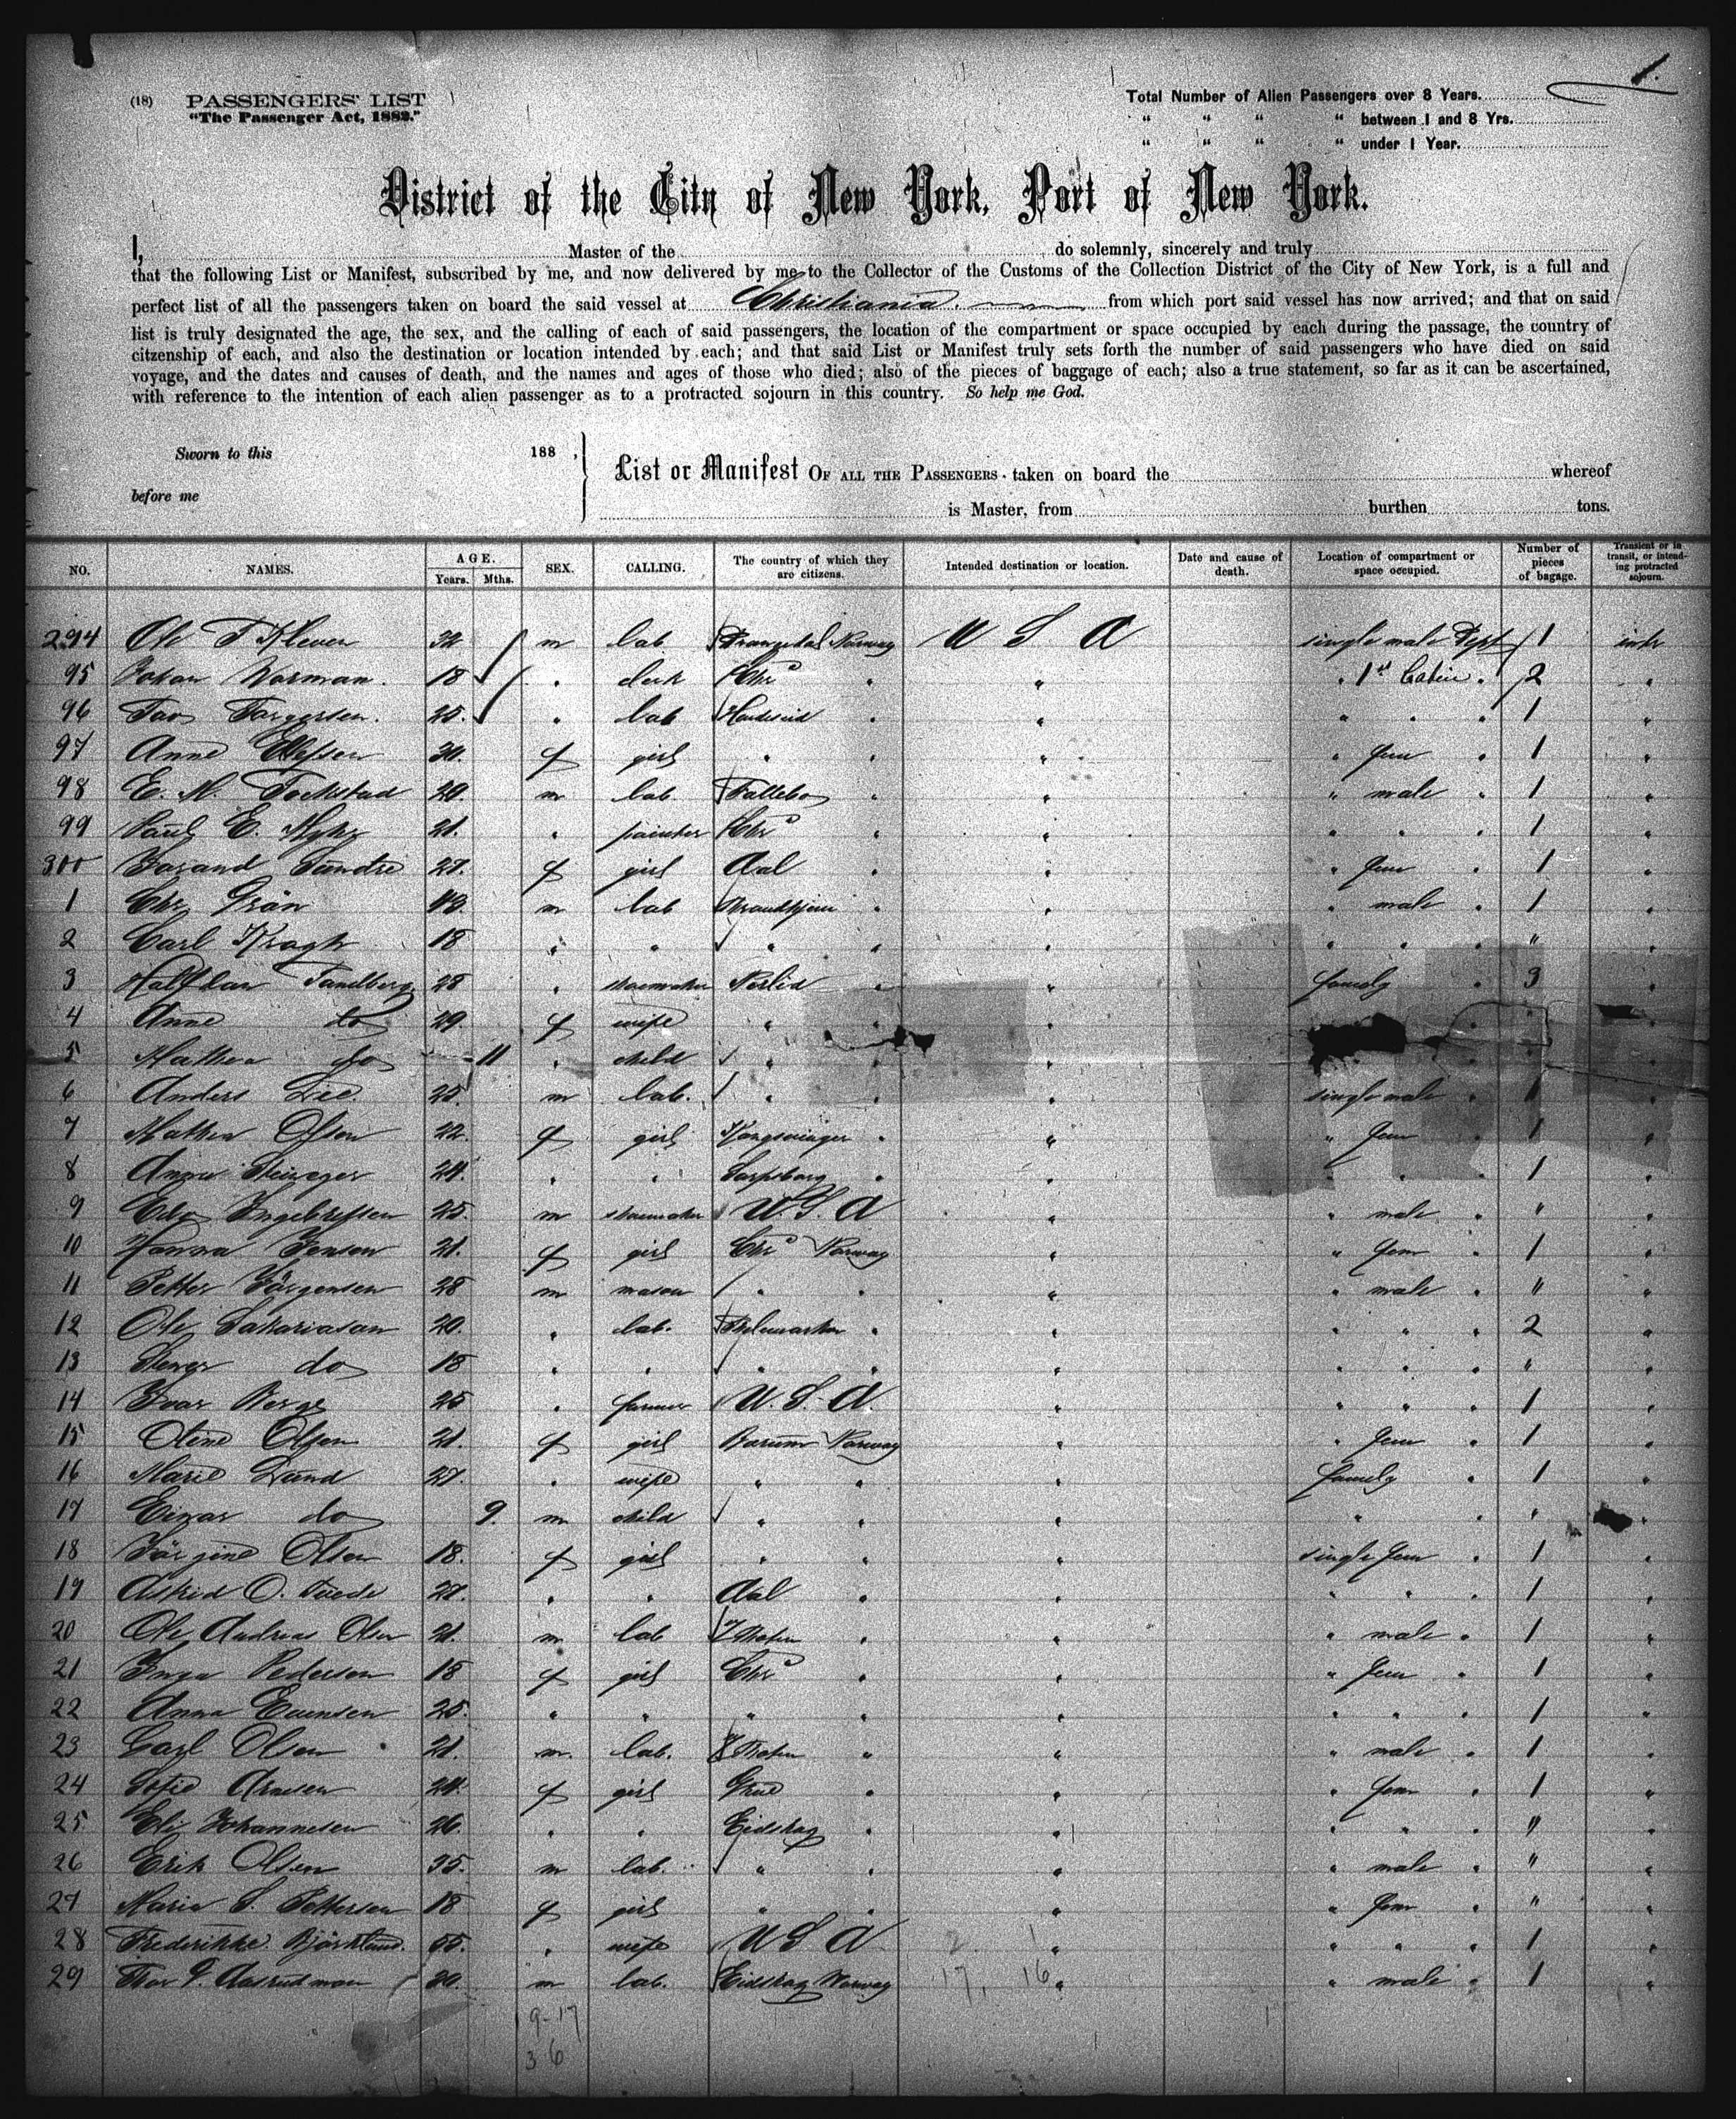 1.
(18) PASSENGERS' LIST
"The Passenger Act, 1882."
Total Number of Alien Passengers over 8 Years.
" " " " between 1 and 8 Yrs.
" " " " under 1 Year.
District of the City of New York, Port of New York.
I, Master of the do solemnly, sincerely and truly
that the following List or Manifest, subscribed by me, and now delivered by me to the Collector of the Customs of the Collection District of the City of New York, is a full and
perfect list of all the passengers taken on board the said vessel at Christiania. from which port said vessel has now arrived; and that on said
list is truly designated the age, the sex, and the calling of each of said passengers, the location of the compartment or space occupied by each during the passage, the country of
citzenship of each, and also the destination or location intended by each; and that said List or Manifest truly sets forth the number of said passengers who have died on said
voyage, and the dates and causes of death, and the names and ages of those who died; also of the pieces of baggage of each; also a true statement, so far as it can be ascertained,
with reference to the intention of each alien passenger as to a protracted sojourn in this country. So help me God.
Sworn to this 188 ,
before me
List or Manifest OF ALL THE PASSENGERS taken on board the whereof
is Master, from burthen tons.
NO. NAMES. AGE. Years. Mths. SEX. CALLING. The country of which they are citizens. Intended destination or location. Date and cause of death. Location of compartment or space occupied. Number of pieces of bagage. Transient or in transit, or intending protracted sojourn.
294 Ole T. Kleven m lab. Norway U S A single male Dept 1
95 Johan Worman. 18 " clerk Chra " " " 1st Cabin " 2 "
96 25. " lab " " " " " 1 "
97 Anne f girl " " " " fem " 1 "
98 E. M. 20. m lab. " " " male " 1 "
99 Paul E. 21. " painter Chra " " " " " 1 "
300 27. f girl Aal " " " fem " 1 "
1 Chr. Grän m lab " " " male " 1 "
2 Carl Kragh 18 " " " " " " " " " "
3 Halfdan 28 " shoemaker " " family " 3 "
4 Anne do 29 f wife " " " " "
5 Mathea do 11 " child " " " " "
6 Anders Lie. 25. m lab. " " " single male " 1 "
7 Mathea Olsen 22. f girl Kongsvinger " " " fem " 1 "
8 Anna 24. " " Sarpsborg " " " " " 1 "
9 Ingebretsen 25. m shoemaker U.S.A " " male " " "
10 Hanna Jensen 21. f girl Chra Norway " " fem " 1 "
11 Petter Jörgensen 28 m mason " " " " male " " "
12 Ole Sakariasen 20. " lab. Thelemarken " " " " " 2 "
13 do 18 " " " " " " " " " "
14 Ivar Berge 25 " farmer U.S.A. " " " " 1 "
15 Oline Olsen 21. f girl Bärum Norway " " fem " 1 "
16 Marie Lund 27. " wife " " " family " 1 "
17 Einar do 9. m child " " " " " "
18 Jörgine Olsen 18. f girl " " " single fem " 1 "
19 Astrid O. 27. " " Aal " " " " " 1 "
20 Ole Andreas Olsen 21. m lab " " " male " 1 "
21 Inga Pedersen 18 f girl Chra " " " fem " 1 "
22 Anna Evensen 25. " " " " " " " " 1 "
23 Carl Olsen 21. m. lab. " " " male " 1 "
24 Sofie 24. f girl Grue " " " fem " 1 "
25 Eli Johannesen 26. " " Eidskog " " " " " " "
26 Erik Olsen 35. m lab. " " " " male " " "
27 Maria S. Pettersen 18 f girl " " " " fem " " "
28 Frederikke Björklund. 55. " wife U S A 2 1 " " " " 1 "
29 20. m lab. Eidskog Norway 17, 16 " " male " 1 "
9-17
36